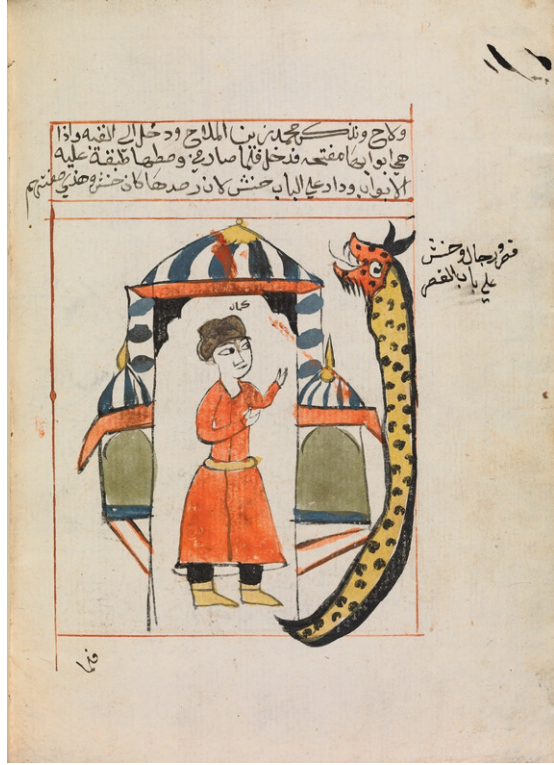 ولاح وتنكر محمد بن الملاح ودخل الى القبه واذا
هي ابوابها مفتحه فدخل فلما صار في وسطها طبقة عليه
الابواب ودار على الباب حنش كان رصدها كان حنش وهذي صفتهم
كمال
قصر رجال وحنش
على باب القصر
فلما